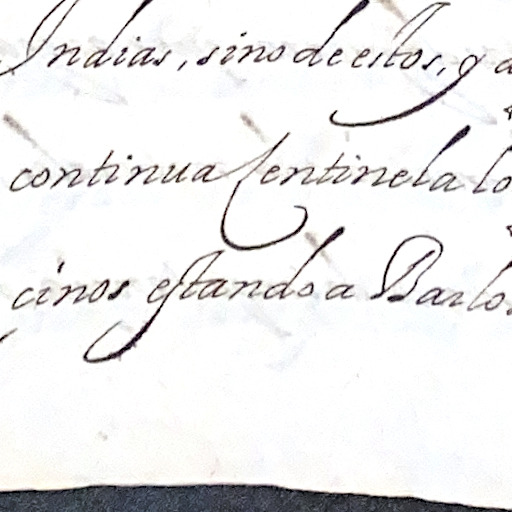 Indias, sino de estos, y a
continua Sentinela lo
cinos estando a Barlo